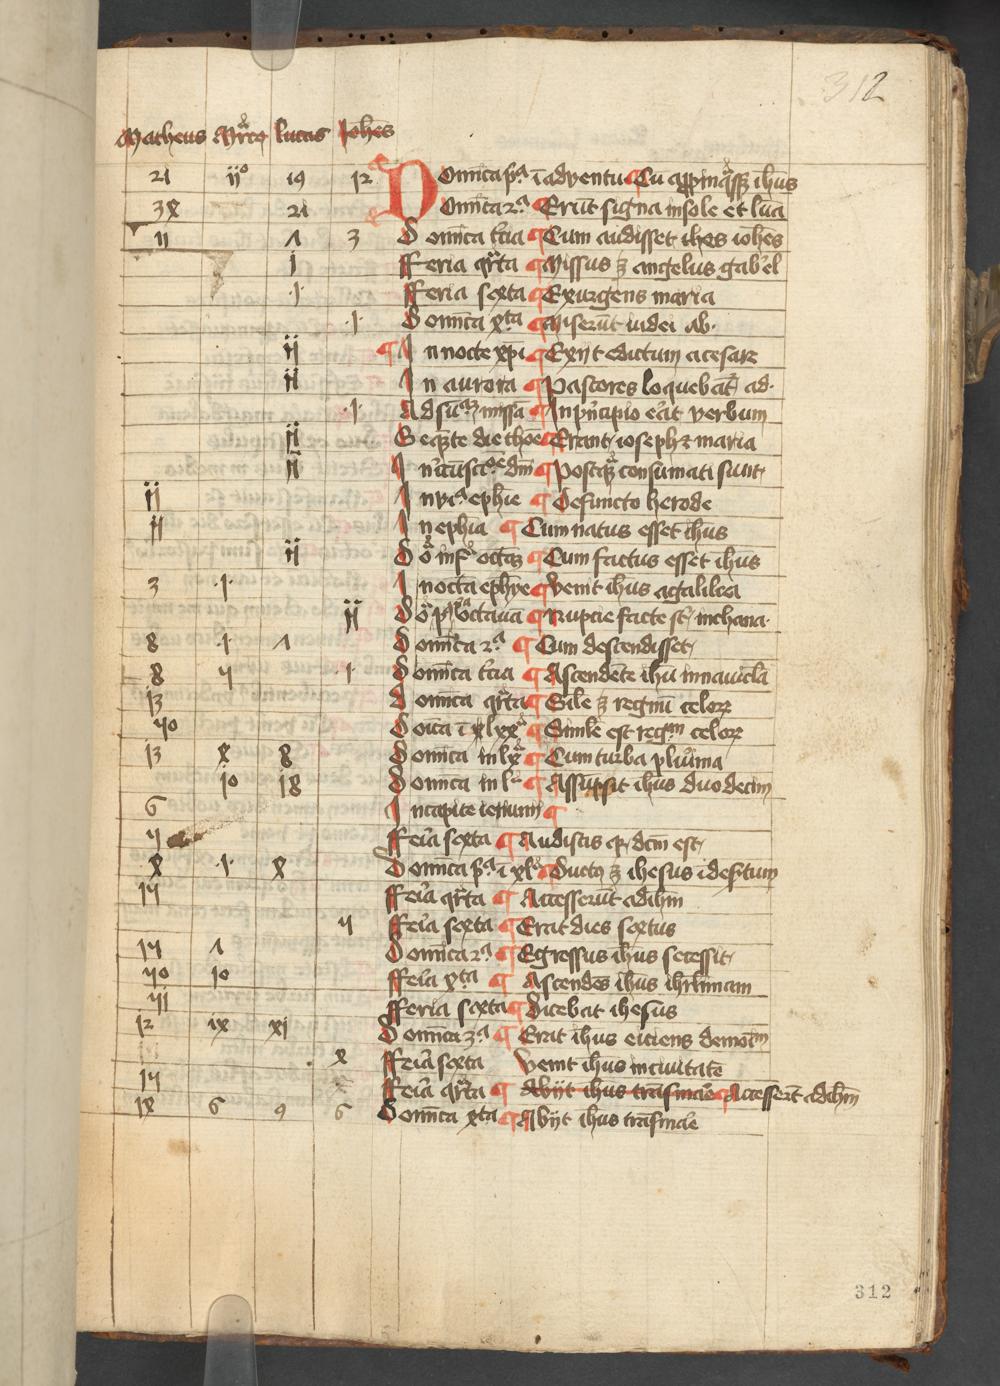 312
Matheus Marco lucas Johes
21 ii° 19 12 Domica pa i adventu ¶ Cu appinqssz ihus
3x 21 Domica 2a ¶ Erut signa in sole et lua
11 Λ 3 Domica tcia ¶ Cum audisset ihes iohes
j fferia qrta ¶ Missus z angelus gabel
j fferia sexta ¶ Exurgens maria
j Domica xta ¶ Miserut iudei ab
ij ¶ In nocte xpi ¶ Exijt edictum a cesare
ij In aurora ¶ Pastores loquebat ad
j Ad sua missa ¶ In pncipio erat verbum
ij Seqete die thoe ¶ Erant ioseph z maria
ij In cucisce dm ¶ Postqz consumati sunt
ij In via ephie ¶ Defuncto herode
ij In ephia ¶ Cum natus esset ihus
ij Do inf octaz ¶ Cum factus esset ihus
3 j In octa ephye ¶ Venit ihus a galilea
ij Do p octava ¶ Nupcie facte st in chana
8 j Λ Domica 2a ¶ Cum descendisset
8 4 j Domica tcia ¶ Ascendete ihu in navicla
13 Domica qrta ¶ Sile z regnu celor
40 Doica i lxxa ¶ Simile est regm celor
13 x 8 Domica in lxa ¶ Cum turba plurima
10 18 Domica in la ¶ Assupsit ihus duodecim
6 In capite ieiunij ¶
4 ffeia sexta ¶ Audistis q dcm est
x j x Domica pa i xla ¶ Ductq z ihesus i desertum
14 ffeia qrta ¶ Accesserut ad ihm
4 ffeia sexta ¶ Erat dies festus
14 Λ Domica 2a ¶ Egressus ihus secessit
40 10 ffeia xta ¶ Ascendes ihus ihrlimam
41 fferia sexta ¶ Dicebat ihesus
12 ix xj Domica 3a ¶ Erat ihus eiciens demoim
x ffeia sexta Venit ihus in civitate
14 ffeia qrta ¶ Abijt ihus trasmae ¶ Accessert ad ihm
18 6 9 6 Domica xta ¶ Abijt ihus trasmae
312